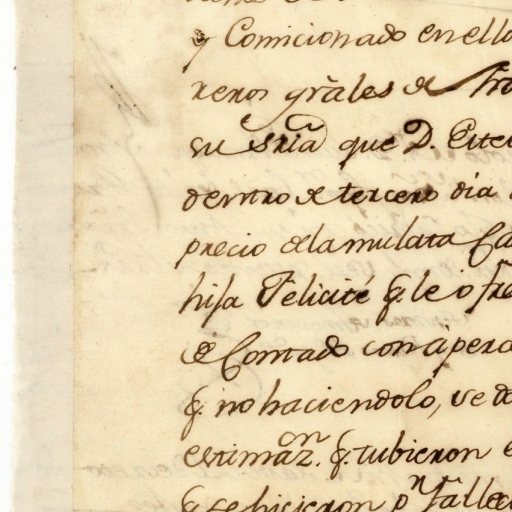 y Comicionado en ello
reros gräles de
su Sria que D. Estev
dentro de tercero dia
precio dela mulata Ca
hisa Felicité q. le ofre
de Contado con aperc
q. no haciendolo, se de
estimazn. q. tubieron
q se hicieron pn